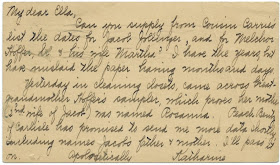 My dear Ella,
Can you supply from Cousin Carrie's
list the dates for Jacob Hollinger, and for Melchior
Hoffer and his wife Martha? I have the years, but
have mislaid the paper having months and days.
Yesterday in cleaning closets, came across great-
grandmother Hoffer's sampler, which proves her mother
(2nd wife of Jacob) was named Rosanna.
of Carlisle has promised to send me more data shortly,
including names Jacob's father & mother. I'll pass it
on. Katharine